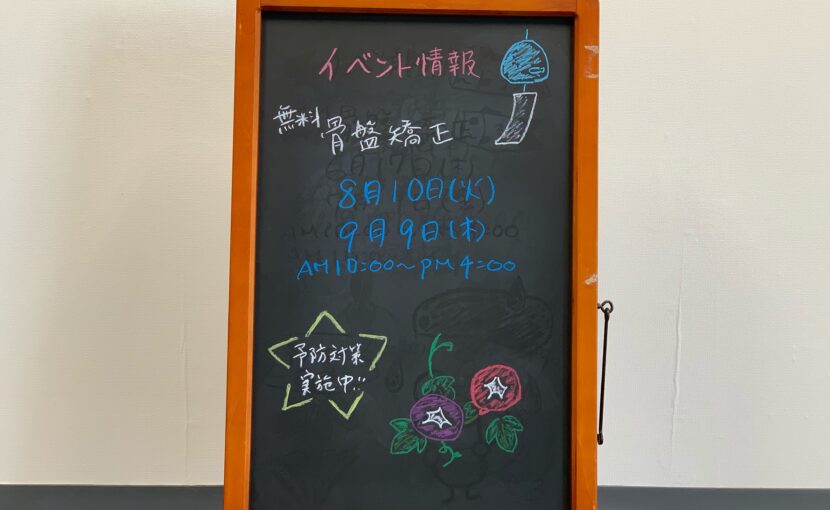 イベント情報
無料骨盤矯正
8月10日(火)
9月9日(木)
AM10:00～PM4:00
予防対策
実施中!!